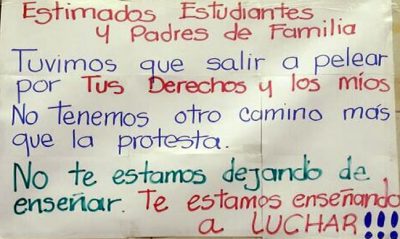 Estimados Estudiantes
y Padres de Familia
Tuvimos que salir a pelear
por Tus Derechos y los míos
No Tenemos otro camino más
que la protesta.
No te estamos dejando de
enseñar. Te estamos enseñando
a LUCHAR!!!